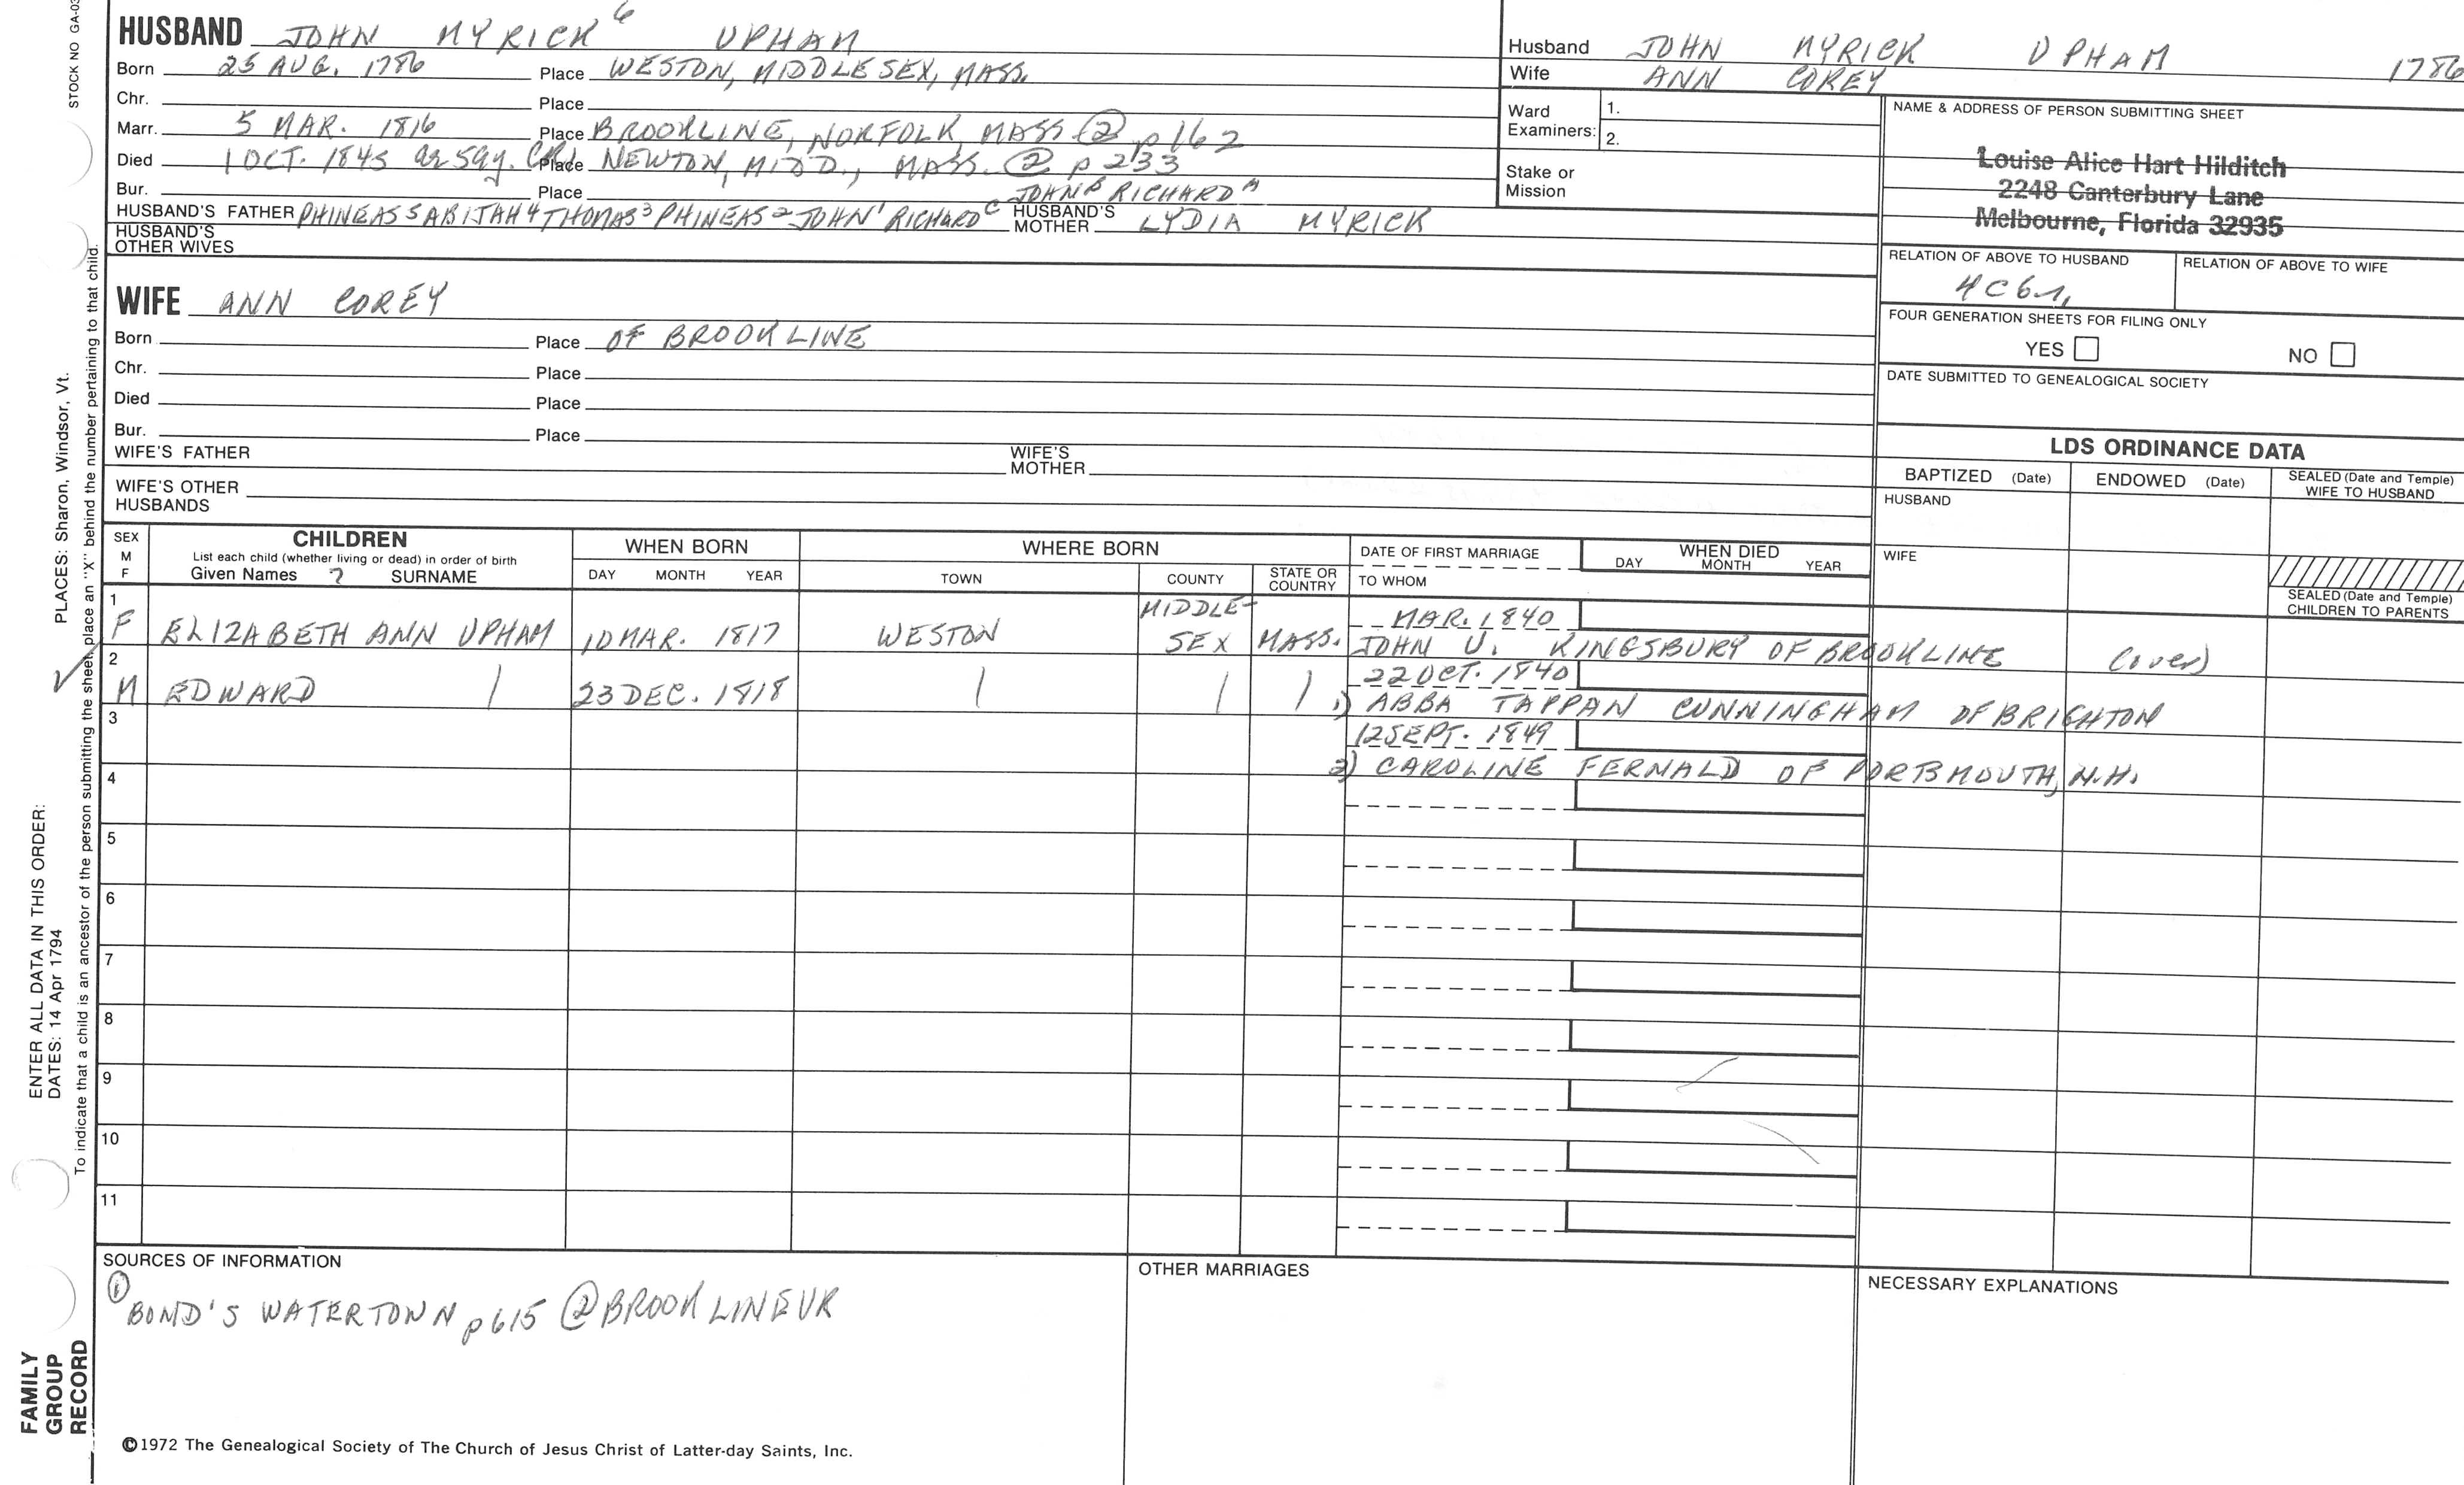 STOCK NO GA-03
HUSBAND JOHN MYRICK 6 UPHAM
Born 25 AUG. 1786 Place WESTON, MIDDLESEX, MASS.
Chr. Place
Marr. 5 MAR. 1816 Place BROOKLINE, NORFOLK, MASS ② p 162
Died 1 OCT. 1845 ae 59y. CR1 Place NEWTON, MIDD., MASS. ② p 233
Bur. Place
JOHN B RICHARD A
HUSBAND'S FATHER PHINEAS 5 ABIJAH 4 THOMAS 3 PHINEAS 2 JOHN 1 RICHARD C HUSBAND'S MOTHER LYDIA MYRICK
HUSBAND'S OTHER WIVES
WIFE ANN COREY
Born Place OF BROOKLINE
Chr. Place
Died Place
Bur. Place
WIFE'S FATHER WIFE'S MOTHER
WIFE'S OTHER HUSBANDS
Husband JOHN MYRICK UPHAM 1786
Wife ANN COREY
Ward Examiners: 1.
2.
Stake or Mission
NAME & ADDRESS OF PERSON SUBMITTING SHEET
Louise Alice Hart Hilditch
2248 Canterbury Lane
Melbourne, Florida 32935
RELATION OF ABOVE TO HUSBAND RELATION OF ABOVE TO WIFE
4C6r.
FOUR GENERATION SHEETS FOR FILING ONLY
YES NO
DATE SUBMITTED TO GENEALOGICAL SOCIETY
LDS ORDINANCE DATA
BAPTIZED (Date) ENDOWED (Date) SEALED (Date and Temple) WIFE TO HUSBAND
HUSBAND
WIFE
SEALED (Date and Temple) CHILDREN TO PARENTS
SEX M F
CHILDREN
List each child (whether living or dead) in order of birth
Given Names 7 SURNAME
WHEN BORN
DAY MONTH YEAR
WHERE BORN
TOWN COUNTY STATE OR COUNTRY
DATE OF FIRST MARRIAGE
TO WHOM
WHEN DIED
DAY MONTH YEAR
1 F ELIZABETH ANN UPHAM 10 MAR. 1817 WESTON MIDDLE-SEX MASS. MAR. 1840
JOHN U. KINGSBURY OF BROOKLINE (over)
2 M EDWARD | 23 DEC. 1818 | | | 22 OCT. 1840
1) ABBA TAPPAN CUNNINGHAM OF BRIGHTON
3 12 SEPT. 1849
2) CAROLINE FERNALD OF PORTSMOUTH, N.H.
4
5
6
7
8
9
10
11
SOURCES OF INFORMATION
① BOND'S WATERTOWN p 615 ② BROOKLINE VR
OTHER MARRIAGES
NECESSARY EXPLANATIONS
©1972 The Genealogical Society of The Church of Jesus Christ of Latter-day Saints, Inc.
FAMILY GROUP RECORD
ENTER ALL DATA IN THIS ORDER:
DATES: 14 Apr 1794
PLACES: Sharon, Windsor, Vt.
To indicate that a child is an ancestor of the person submitting the sheet, place an "X" behind the number pertaining to that child.